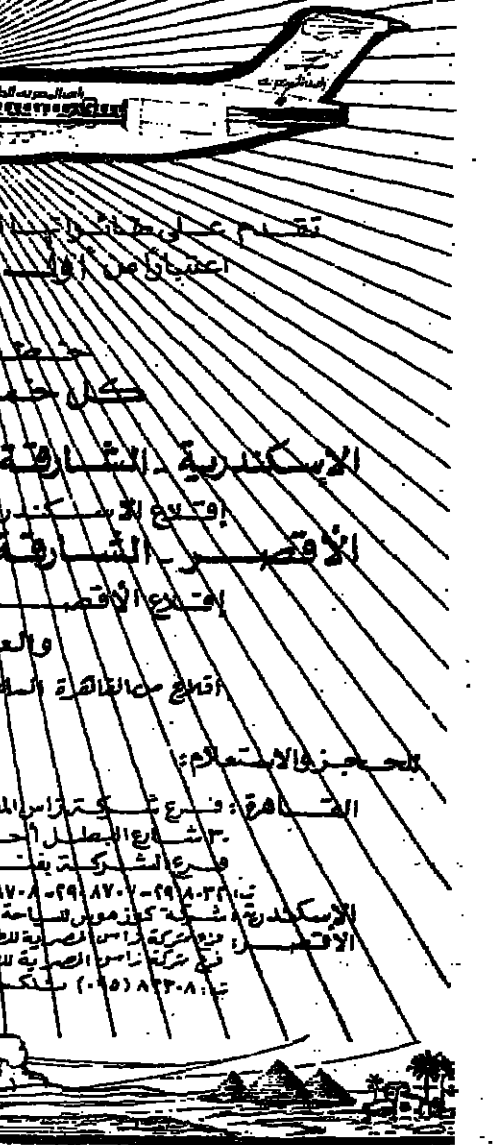 تقدم على طائراتها
اعتبارا من أول
خط
كل خمـ
الإسكندرية - الشارقة
إقلاع الاسكندر
الأقصر - الشارقة
إقلاع الأقصـ
والعـ
اقلاع من القاهرة السا
للحجز والاستعلام:
القاهرة: فرع شركة زاس الم
٣٠ شارع البطل أحـ
فرع الشركة بفنـ
الإسكندرية: شركة كوزموس للسياحة
الأقصر: فرع شركة زاس المصرية للط
فرع شركة زاس المصرية للـ
ت: ٨٢٣٠٨ (٠٩٥) تلكسـ